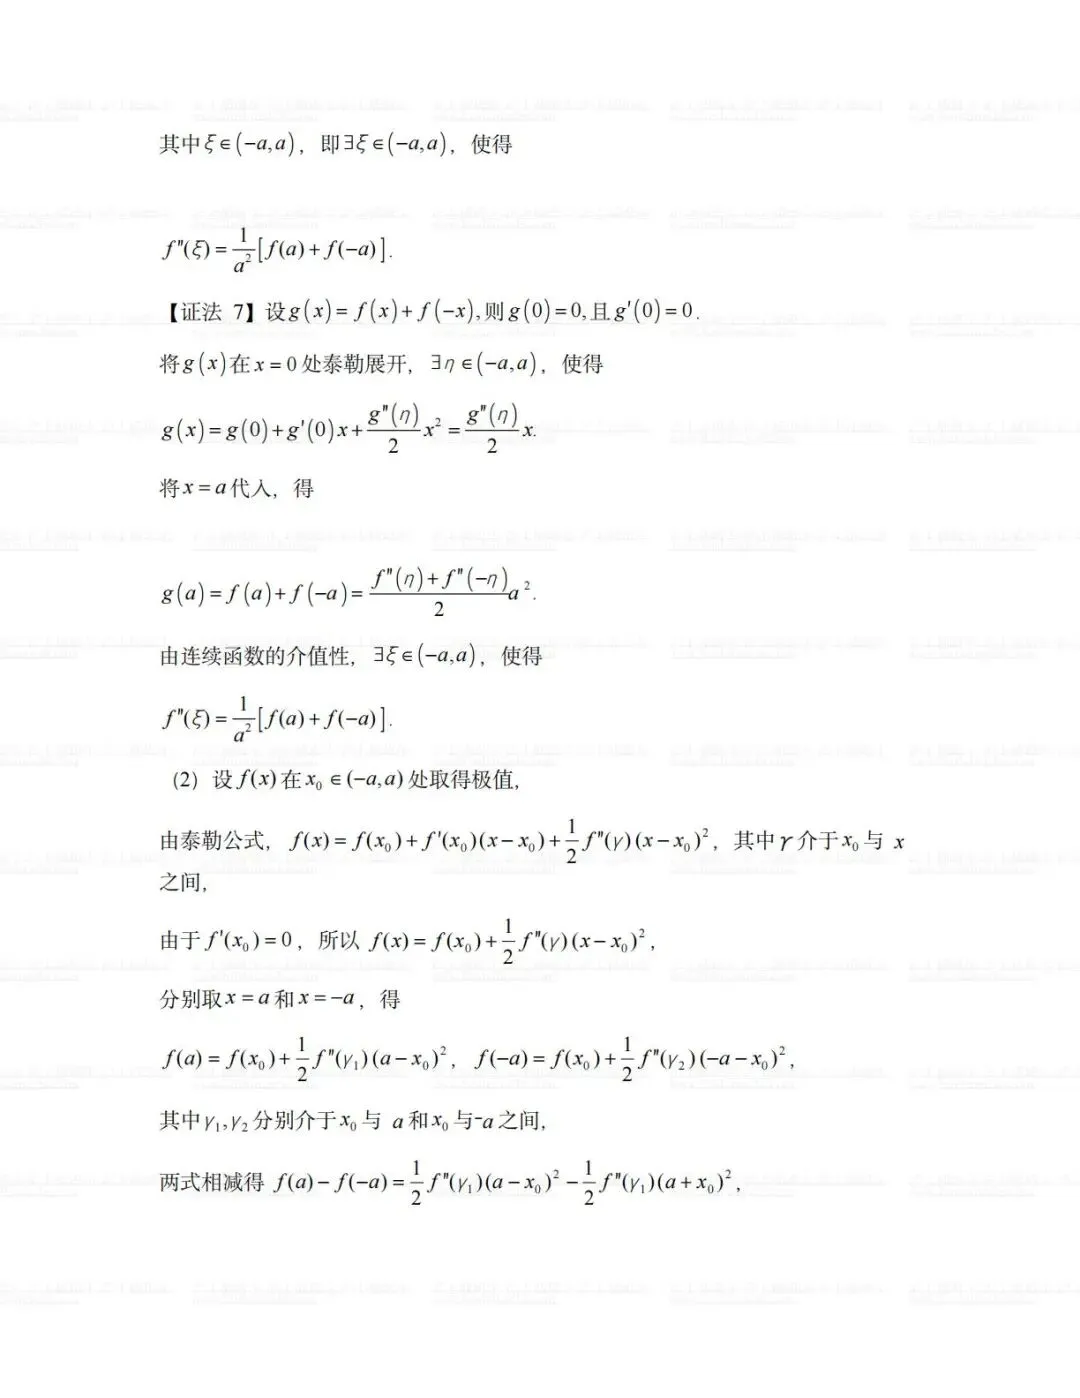 其中ξ∈(−a,a)，即∃ξ∈(−a,a)，使得
f″(ξ)=1/a²[f(a)+f(−a)].
【证法 7】设g(x)=f(x)+f(−x),则g(0)=0,且g′(0)=0.
将g(x)在x=0处泰勒展开，∃η∈(−a,a)，使得
g(x)=g(0)+g′(0)x+g″(η)/2 x²=g″(η)/2 x.
将x=a代入，得
g(a)=f(a)+f(−a)=(f″(η)+f″(−η))/2 a².
由连续函数的介值性，∃ξ∈(−a,a)，使得
f″(ξ)=1/a²[f(a)+f(−a)].
（2）设f(x)在x₀∈(−a,a)处取得极值，
由泰勒公式，f(x)=f(x₀)+f′(x₀)(x−x₀)+1/2 f″(γ)(x−x₀)²，其中γ介于x₀与 x
之间，
由于f′(x₀)=0，所以 f(x)=f(x₀)+1/2 f″(γ)(x−x₀)²，
分别取x=a和x=−a，得
f(a)=f(x₀)+1/2 f″(γ₁)(a−x₀)²，f(−a)=f(x₀)+1/2 f″(γ₂)(−a−x₀)²，
其中γ₁,γ₂分别介于x₀与 a和x₀与-a之间，
两式相减得 f(a)−f(−a)=1/2 f″(γ₁)(a−x₀)²−1/2 f″(γ₁)(a+x₀)²，